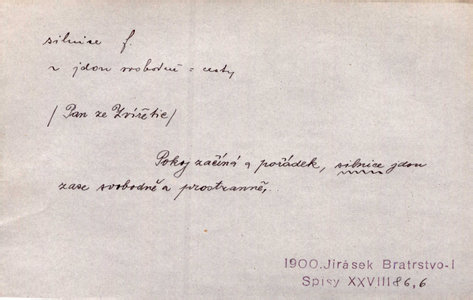 silnice f.
s jdou svobodně = cesty
/Pan ze Zvířetic/
Pokoj začíná a pořádek, silnice jdou
zase svobodně a prostranně,..
1900. Jirásek Bratrstvo-I
Spisy XXVIII 86,6